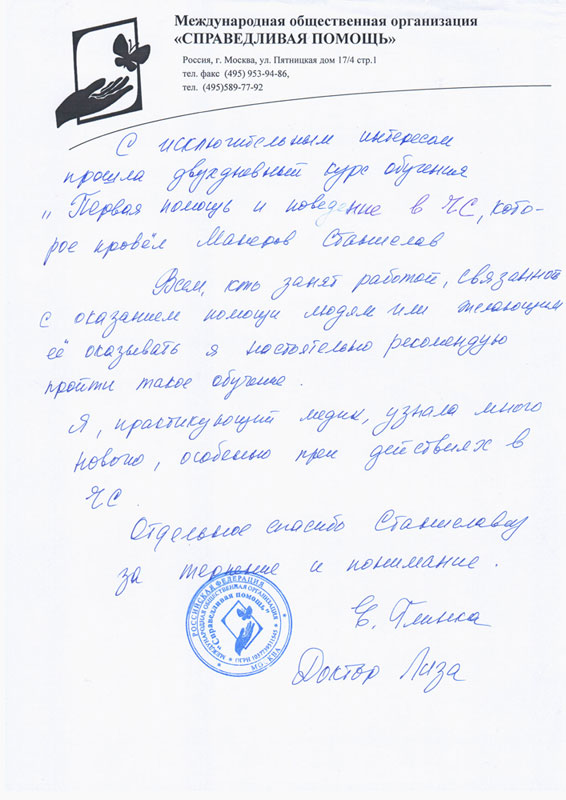 Международная общественная организация
«СПРАВЕДЛИВАЯ ПОМОЩЬ»
Россия, г. Москва, ул. Пятницкая дом 17/4 стр.1
тел. факс (495) 953-94-86,
тел. (495)589-77-92
С исключительным интересом
прошла двухдневный курс обучения
„Первая помощь и поведение в ЧС, кото-
рое провёл Станислав
Всем, кто занят работой, связанной
с оказанием помощи людям или желающим
её оказывать я настоятельно рекомендую
пройти такое обучение.
Я, практикующий медик, узнала много
нового, особенно при действиях в
ЧС.
Отдельное спасибо Станиславу
за терпение и понимание.
Е. Глинка
Доктор Лиза
РОССИЙСКАЯ ФЕДЕРАЦИЯ
МЕЖДУНАРОДНАЯ ОБЩЕСТВЕННАЯ ОРГАНИЗАЦИЯ
"Справедливая помощь"
МОСКВА